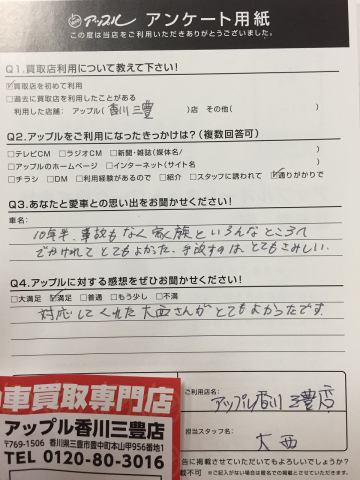 アップル アンケート用紙
この度は当店をご利用いただきありがとうございました。
Q1.買取店利用について教えて下さい!
☑買取を初めて利用
□過去に買取店を利用したことがある
利用した店舗: アップル( 香川三豊 )店 その他( )
Q2.アップルをご利用になったきっかけは?(複数回答可)
□テレビCM □ラジオCM □新聞・雑誌(媒体名/ )
□アップルのホームページ □インターネット(サイト名 )
□チラシ □DM □利用経験があるので □紹介 □スタッフに誘われて ☑通りがかりで
Q3.あなたと愛車との思い出をお聞かせください!
車名:
10年半、事故もなく家族といろんなところへ
でかけれてとてもよかった。手放すのは、とてもさみしい。
Q4.アップルに対する感想をぜひお聞かせください!
□大満足 ☑満足 □普通 □もう少し □不満
対応してくれた大西さんがとてもよかったです。
車買取専門店
アップル香川三豊店
〒769-1506 香川県三豊市豊中町本山甲956番地1
TEL 0120-80-3016
ご利用店名:
アップル香川三豊店
担当スタッフ名:
大西
告に掲載させていただいてもよろしいでしょうか?
載不可 ※ご記入がない場合は匿名での掲載とさせていただきます。